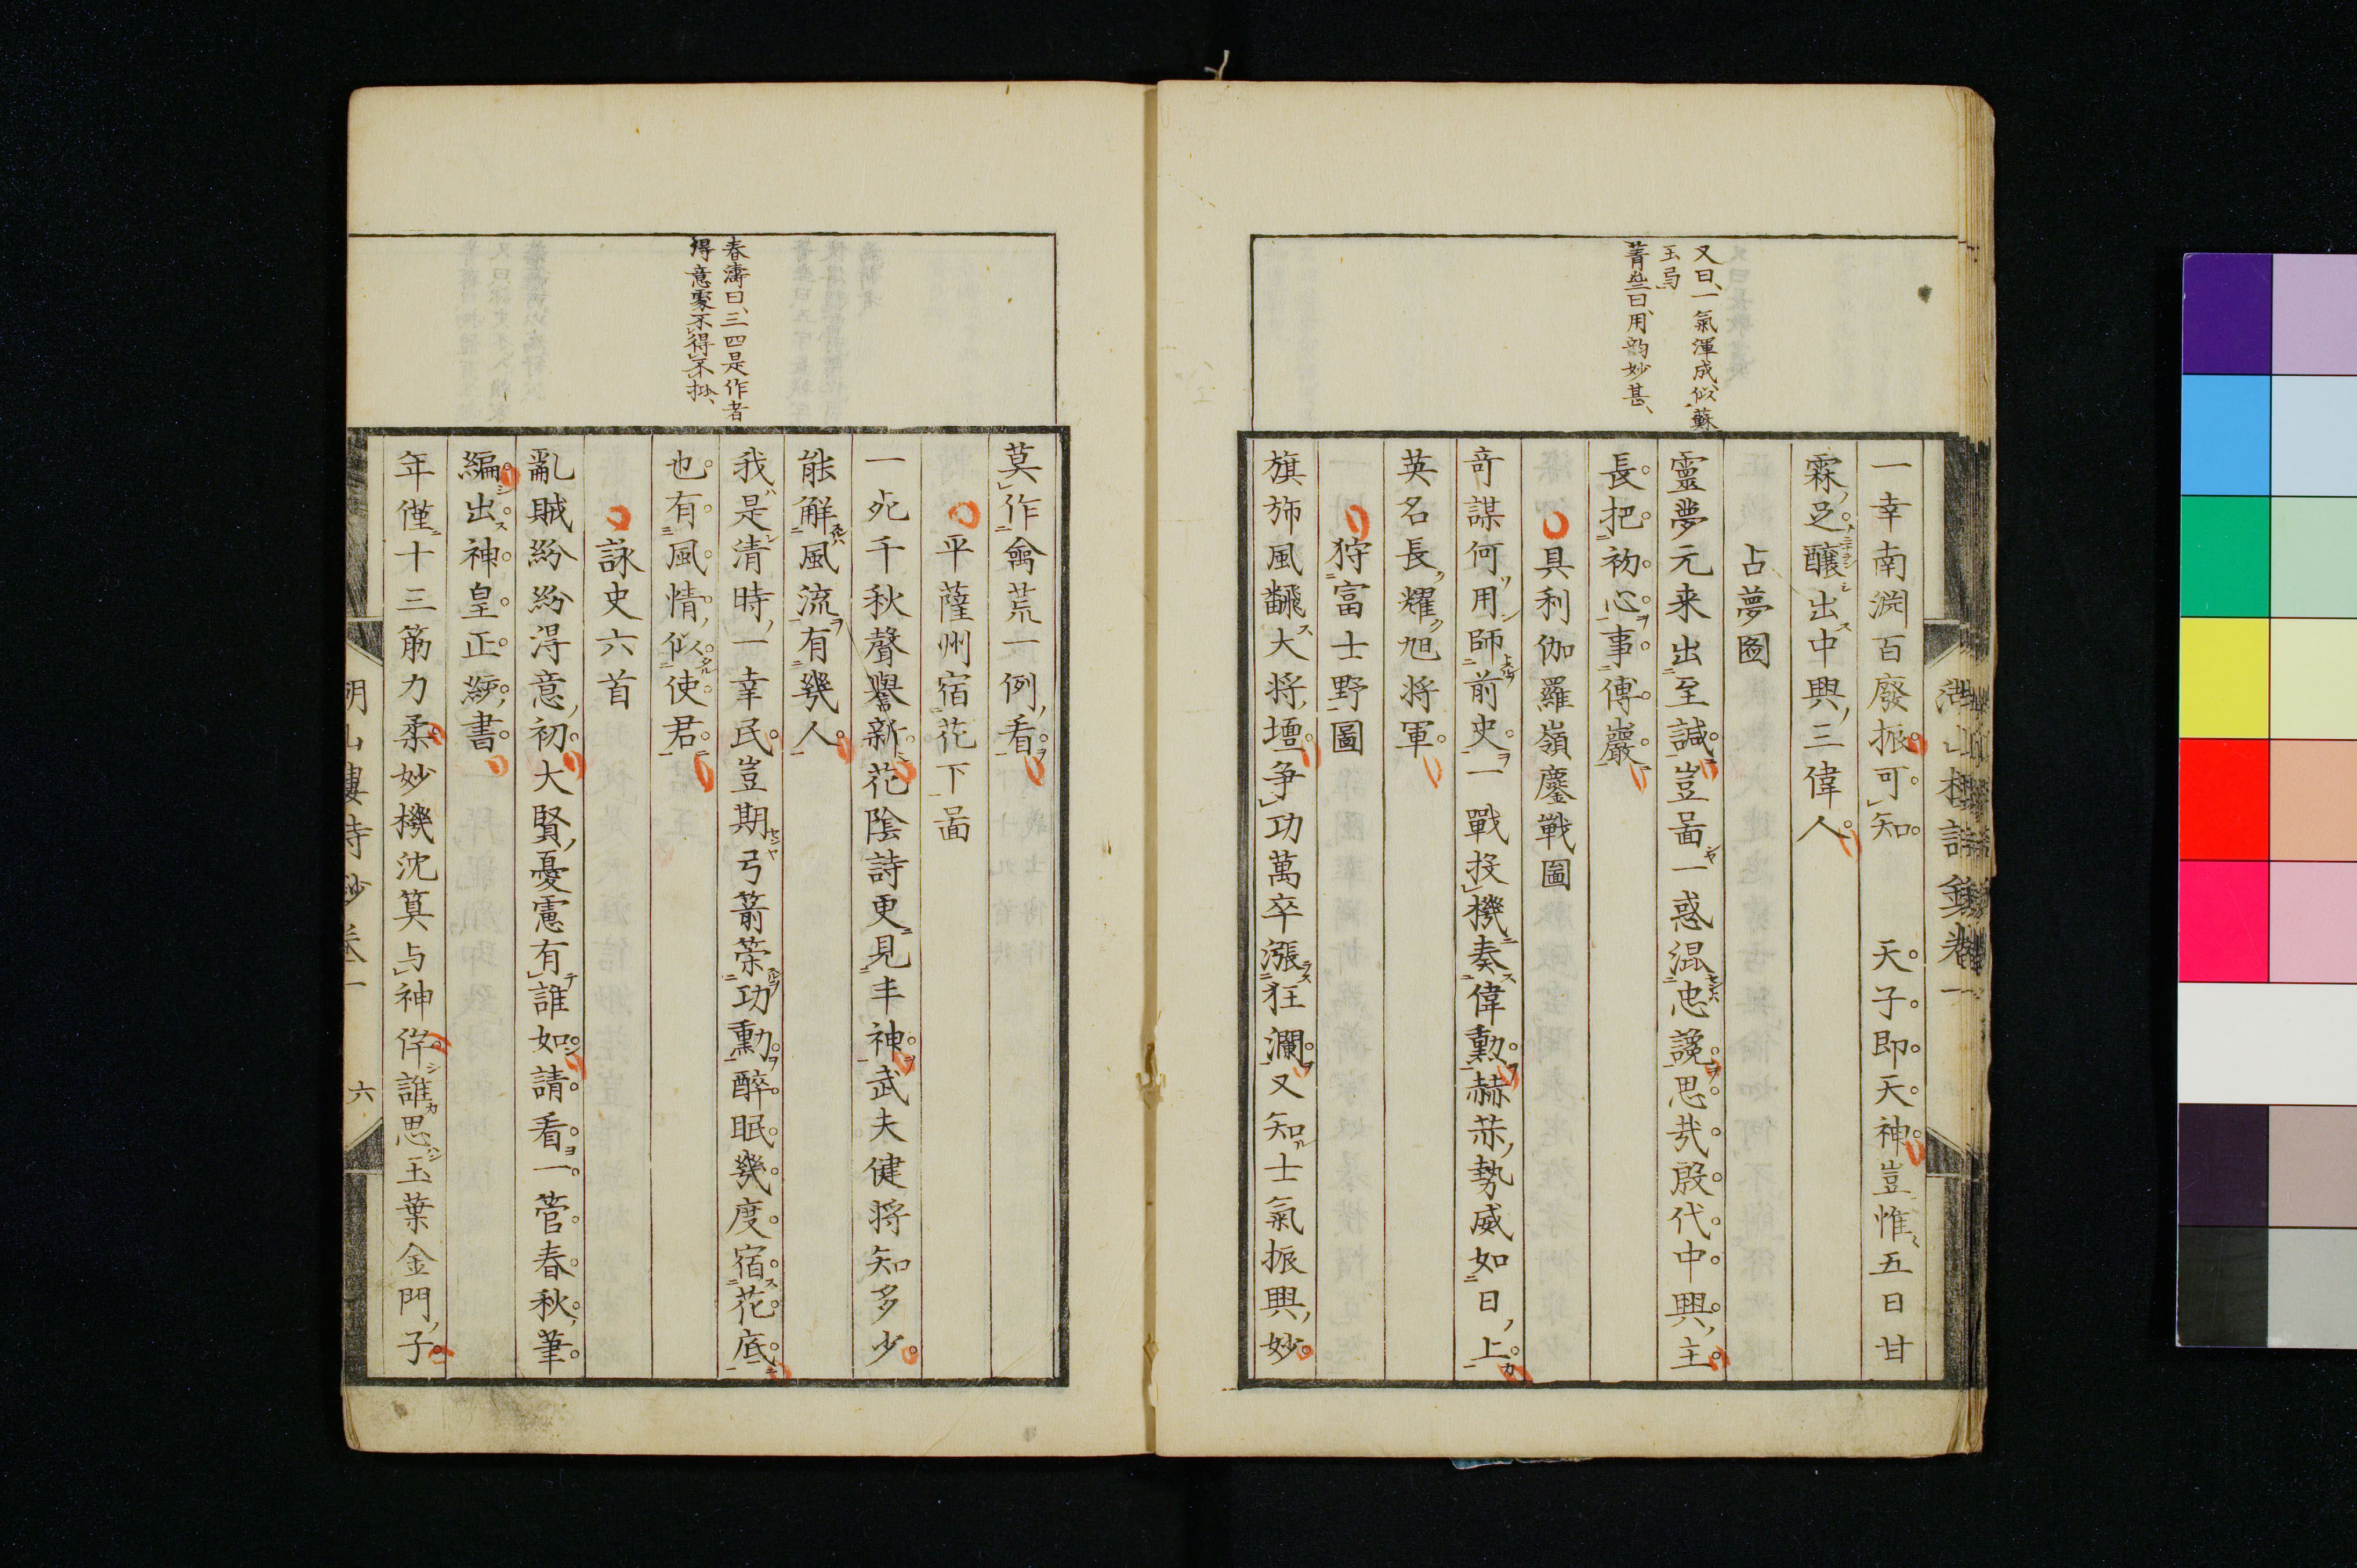 又曰、一氣渾成、似蘇
玉局、
菁些曰、用韵妙甚、
一幸南渕百廢振可知　天子即天神豈惟五日甘
霖足釀出中興三偉人
占夢圖
靈夢元来出至誠豈啚一惑混忠讒思哉殷代中興主
長把初心事傅巖
具利伽羅嶺鏖戰圖
奇謀何用師前史一戰投機奏偉勲赫赫勢威如日上
英名長耀旭将軍
狩富士野圖
旗斾風飜大将壇争功萬卒漲狂瀾又知士氣振興妙
春濤曰、三四是作者
得意處不得不抄、
莫作禽荒一例看
平薩州宿花下啚
一死千秋聲譽新花陰詩更見丰神武夫健将知多少
能解風流有幾人
我是清時一幸民豈期弓箭策功勳醉眠幾度宿花底
也有風情似使君
詠史六首
亂賊紛紛得意初大賢憂慮有誰如請看一管春秋筆
編出神皇正綂書
年僅十三筋力柔妙機沈算与神侔誰思玉葉金門子
六